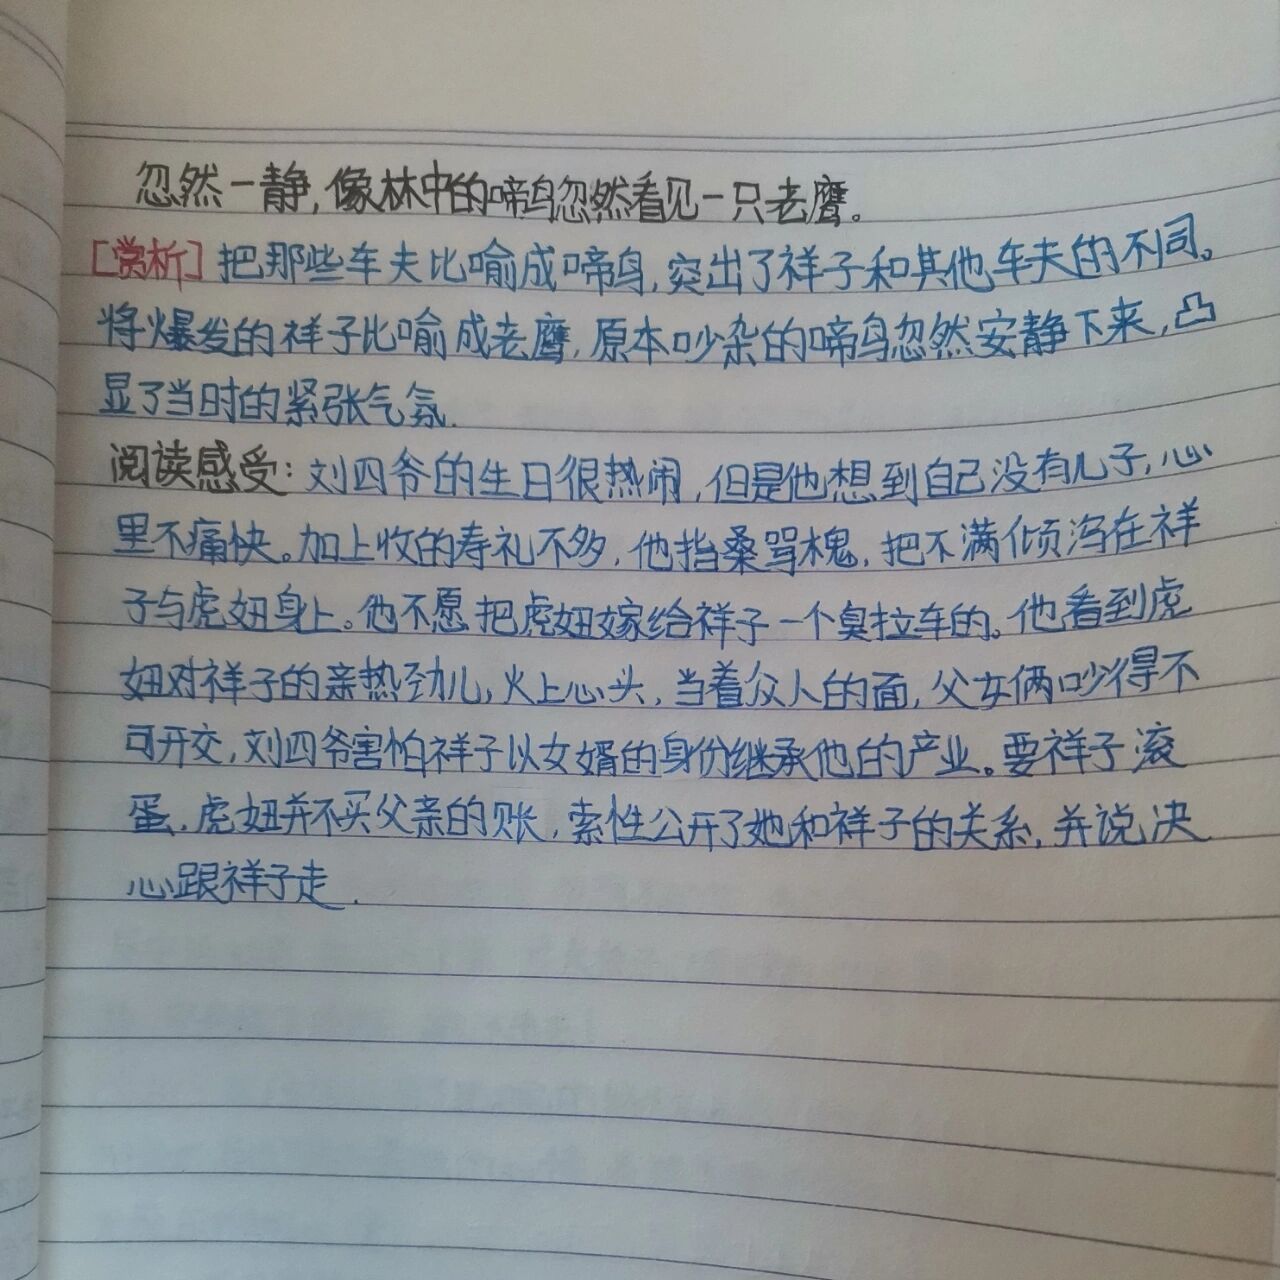 忽然一静,像林中的啼鸟忽然看见一只老鹰。
[赏析]把那些车夫比喻成啼鸟,突出了祥子和其他车夫的不同。
将爆发的祥子比喻成老鹰,原本吵杂的啼鸟忽然安静下来,凸
显了当时的紧张气氛.
阅读感受:刘四爷的生日很热闹,但是他想到自己没有儿子,心
里不痛快。加上收的寿礼不多,他指桑骂槐,把不满倾泻在祥
子与虎妞身上。他不愿把虎妞嫁给祥子一个臭拉车的。他看到虎
妞对祥子的亲热劲儿,火上心头,当着众人的面,父女俩吵得不
可开交,刘四爷害怕祥子以女婿的身份继承他的产业。要祥子滚
蛋.虎妞并不买父亲的账,索性公开了她和祥子的关系,并说决
心跟祥子走.